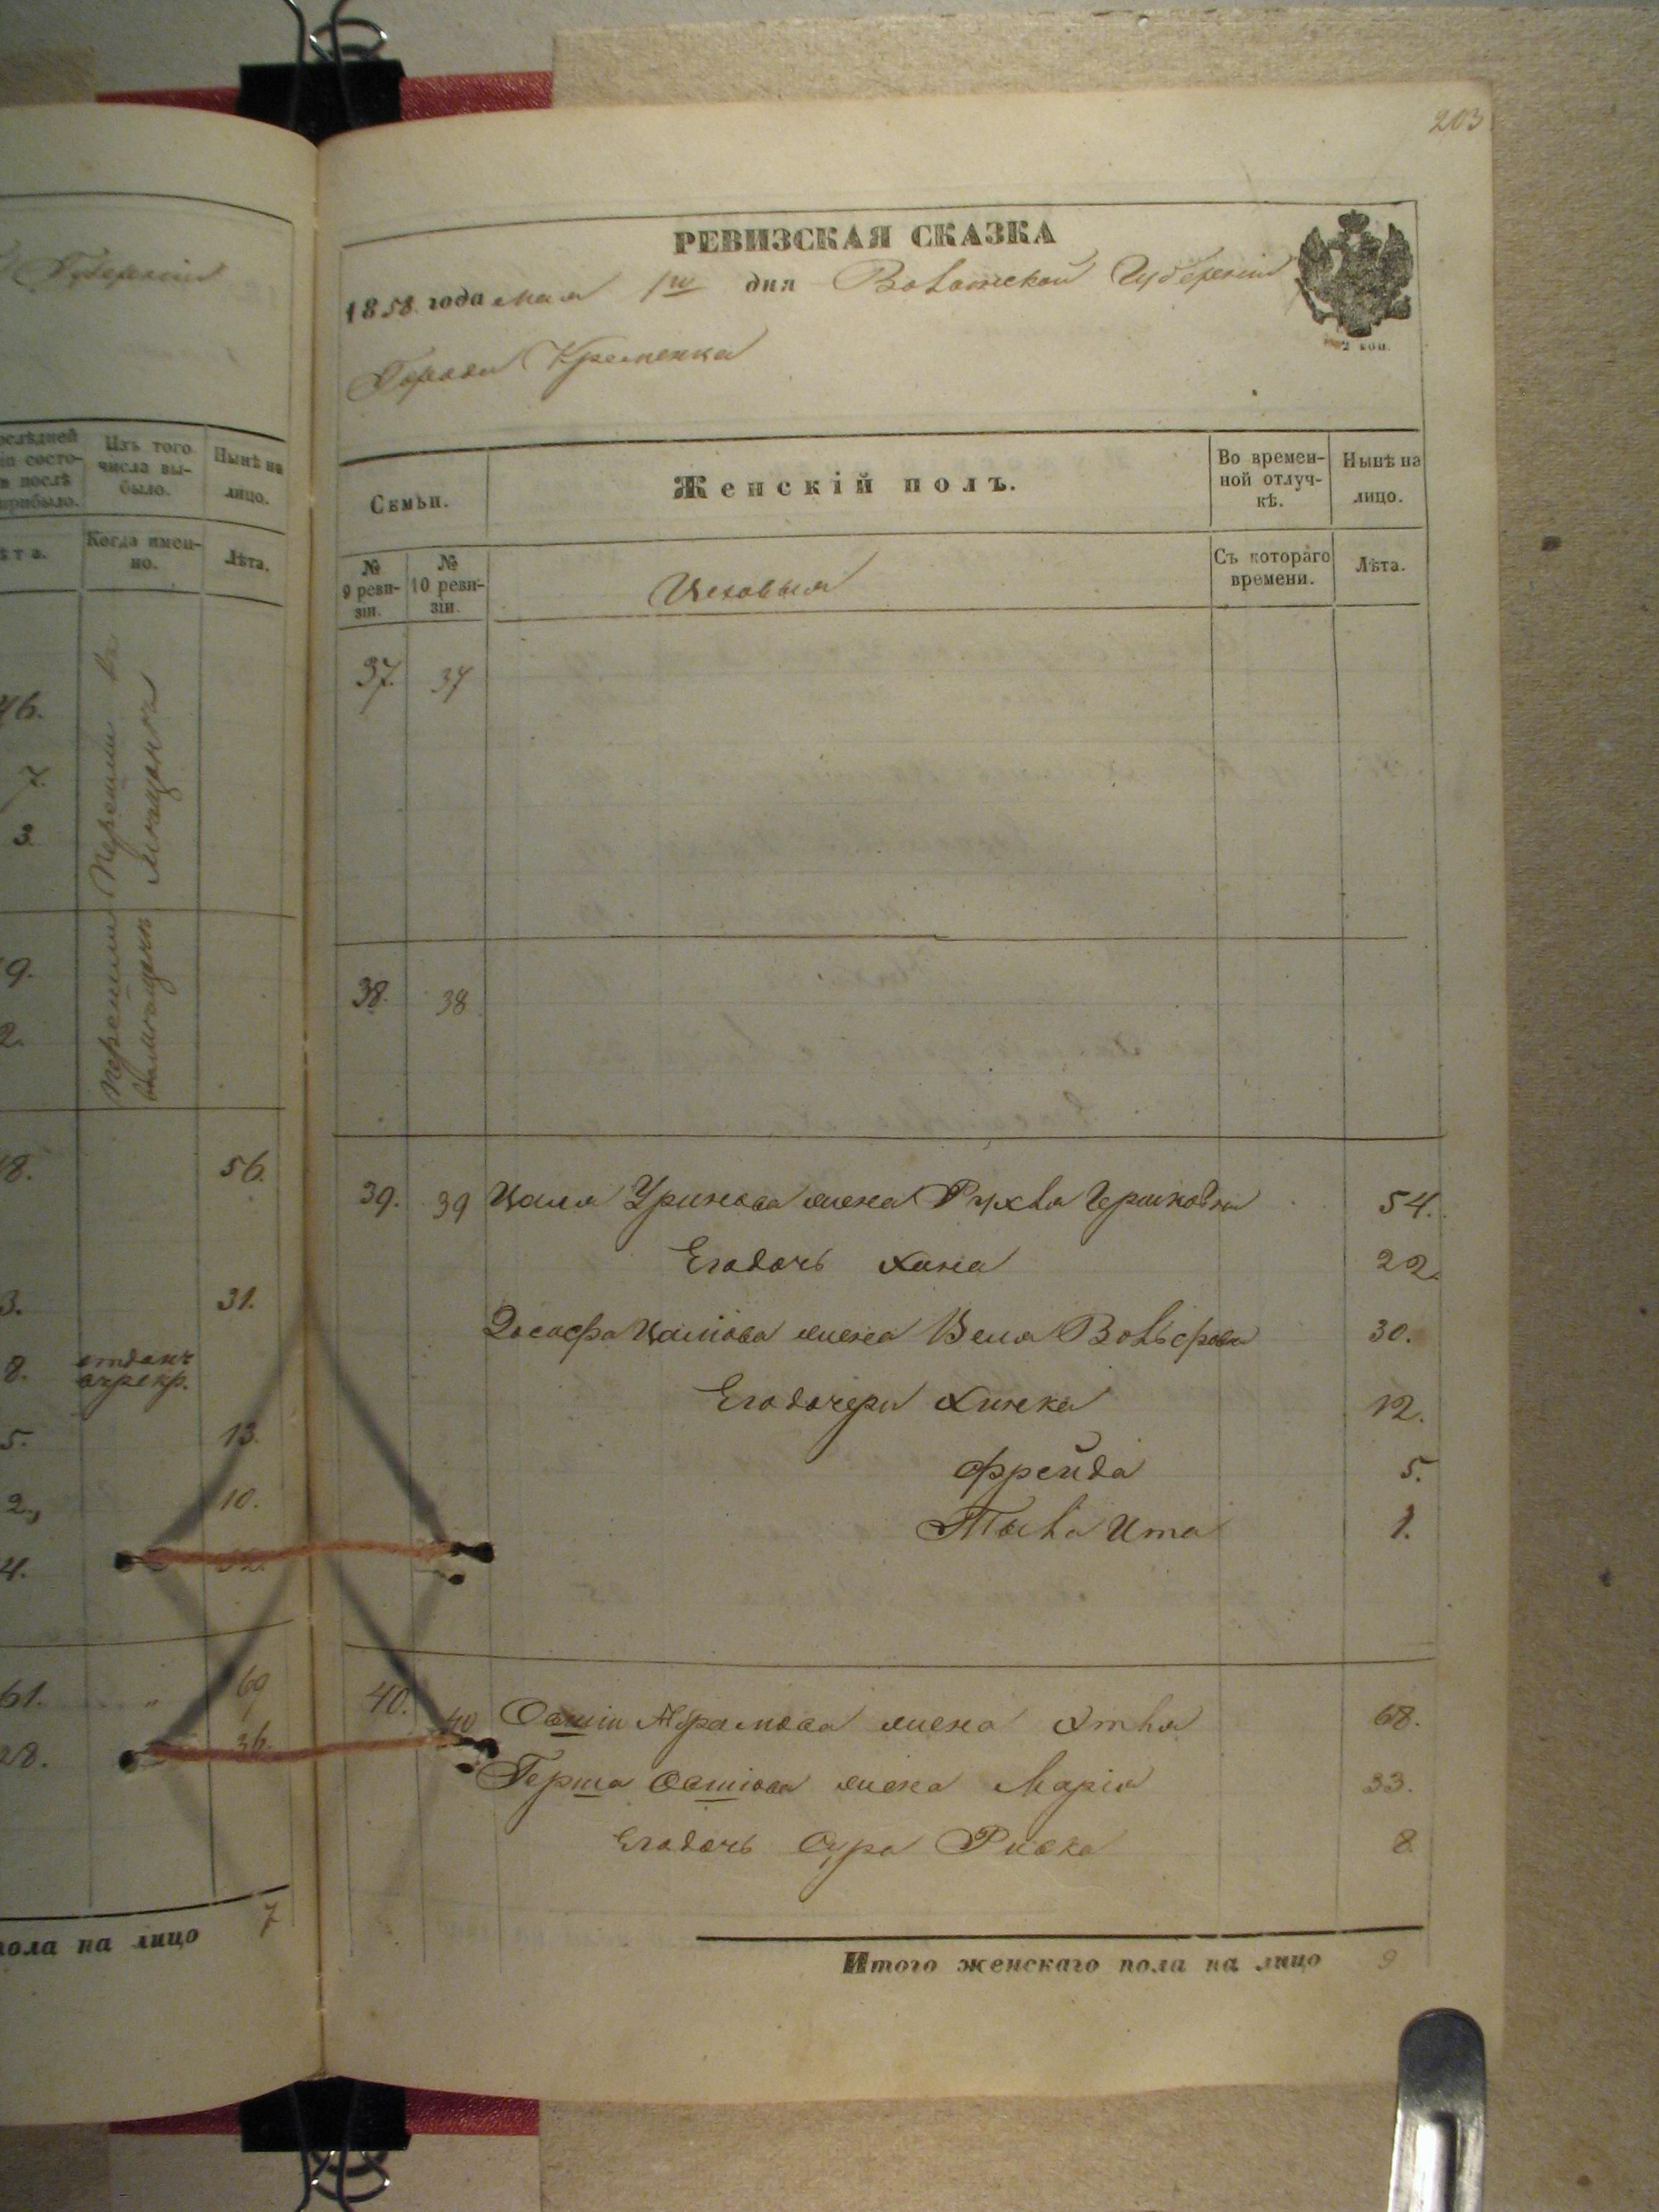 Губерніи
ослѣдней
ін состо-
и послѣ
прибыло.
Изъ того
числа вы-
было.
Нынѣ на
лицо.
ѣта.
Когда имен-
но.
Лѣта.
46.
7.
3
Перешли въ
мѣщане
9.
2.
перешли
въ мѣщане
8.
56.
3.
31.
8.
отданъ
в рекр.
5.
13.
2.
10.
4.
32.
61.
"
69
28.
36.
пола на лицо
7
203
РЕВИЗСКАЯ СКАЗКА
1858 года мая 1го дня Волынской Губерніи
Города Кременца
2 коп.
Семьи.
Женскій полъ.
Во времен-
ной отлуч-
кѣ.
Нынѣ на
лицо.
№
9 реви-
зіи.
№
10 реви-
зіи.
Цеховыя
Съ котораго
времени.
Лѣта.
37. 37
38. 38
39. 39 жена Рухля Гершковна 54.
Его дочь Хана 22.
жена Бейля Вольфова 30.
Его дочери Хинка 12.
Фрейда 5.
Ита 1.
40. 40 Овшія жена 68.
Герша Овшіова жена Марія 33.
Его дочь Сура Ривка 8
Итого женскаго пола на лицо 9